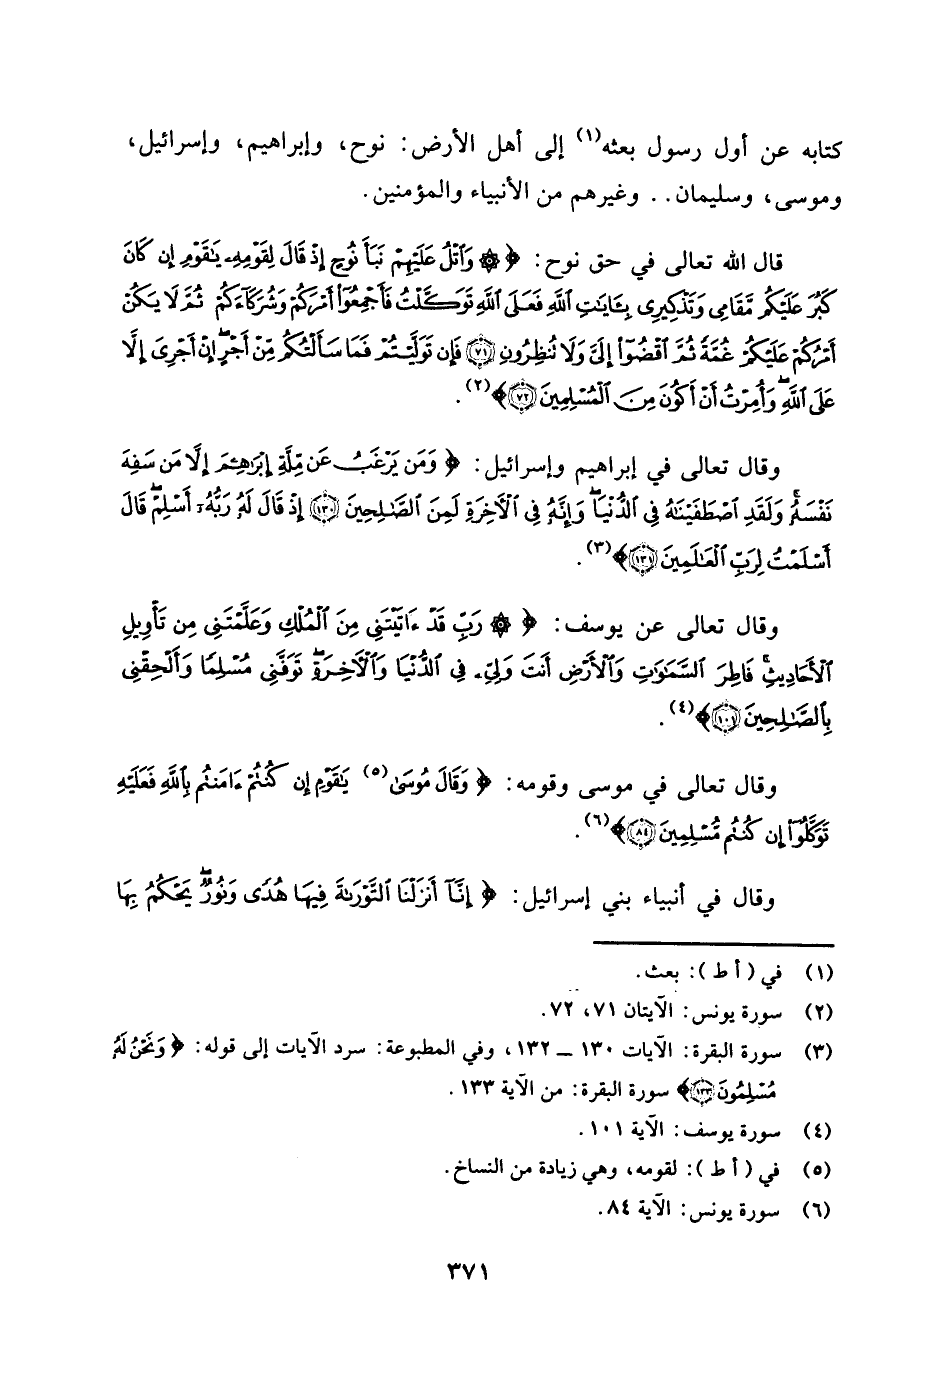 كتابه عن أول رسول بعثه(١) إلى أهل الأرض: نوح، وإبراهيم، وإسرائيل،
وموسى، وسليمان.. وغيرهم من الأنبياء والمؤمنين.
قال الله تعالى في حق نوح: ﴿ ۞ وَٱتْلُ عَلَيْهِمْ نَبَأَ نُوحٍ إِذْ قَالَ لِقَوْمِهِۦ يَٰقَوْمِ إِن كَانَ
كَبُرَ عَلَيْكُم مَّقَامِى وَتَذْكِيرِى بِـَٔايَٰتِ ٱللَّهِ فَعَلَى ٱللَّهِ تَوَكَّلْتُ فَأَجْمِعُوٓا۟ أَمْرَكُمْ وَشُرَكَآءَكُمْ ثُمَّ لَا يَكُنْ
أَمْرُكُمْ عَلَيْكُمْ غُمَّةً ثُمَّ ٱقْضُوٓا۟ إِلَىَّ وَلَا تُنظِرُونِ ﴿٧١﴾ فَإِن تَوَلَّيْتُمْ فَمَا سَأَلْتُكُم مِّنْ أَجْرٍ إِنْ أَجْرِىَ إِلَّا
عَلَى ٱللَّهِ وَأُمِرْتُ أَنْ أَكُونَ مِنَ ٱلْمُسْلِمِينَ ﴿٧٢﴾ ﴾(٢).
وقال تعالى في إبراهيم وإسرائيل: ﴿ وَمَن يَرْغَبُ عَن مِّلَّةِ إِبْرَٰهِۦمَ إِلَّا مَن سَفِهَ
نَفْسَهُۥ وَلَقَدِ ٱصْطَفَيْنَٰهُ فِى ٱلدُّنْيَا وَإِنَّهُۥ فِى ٱلْءَاخِرَةِ لَمِنَ ٱلصَّٰلِحِينَ ﴿١٣٠﴾ إِذْ قَالَ لَهُۥ رَبُّهُۥٓ أَسْلِمْ قَالَ
أَسْلَمْتُ لِرَبِّ ٱلْعَٰلَمِينَ ﴿١٣١﴾ ﴾(٣).
وقال تعالى عن يوسف: ﴿ ۞ رَبِّ قَدْ ءَاتَيْتَنِى مِنَ ٱلْمُلْكِ وَعَلَّمْتَنِى مِن تَأْوِيلِ
ٱلْأَحَادِيثِ فَاطِرَ ٱلسَّمَٰوَٰتِ وَٱلْأَرْضِ أَنتَ وَلِىِّۦ فِى ٱلدُّنْيَا وَٱلْءَاخِرَةِ تَوَفَّنِى مُسْلِمًا وَأَلْحِقْنِى
بِٱلصَّٰلِحِينَ ﴿١٠١﴾ ﴾(٤).
وقال تعالى في موسى وقومه: ﴿ وَقَالَ مُوسَىٰ(٥) يَٰقَوْمِ إِن كُنتُمْ ءَامَنتُم بِٱللَّهِ فَعَلَيْهِ
تَوَكَّلُوٓا۟ إِن كُنتُم مُّسْلِمِينَ ﴿٨٤﴾ ﴾(٦).
وقال في أنبياء بني إسرائيل: ﴿ إِنَّآ أَنزَلْنَا ٱلتَّوْرَىٰةَ فِيهَا هُدًى وَنُورٌ يَحْكُمُ بِهَا
(١) في (أ ط): بعث.
(٢) سورة يونس: الآيتان ٧١، ٧٢.
(٣) سورة البقرة: الآيات ١٣٠ ـ ١٣٢، وفي المطبوعة: سرد الآيات إلى قوله: ﴿ وَنَحْنُ لَهُۥ
مُسْلِمُونَ ﴿١٣٣﴾ ﴾ سورة البقرة: من الآية ١٣٣.
(٤) سورة يوسف: الآية ١٠١.
(٥) في (أ ط): لقومه، وهي زيادة من النساخ.
(٦) سورة يونس: الآية ٨٤.
٣٧١